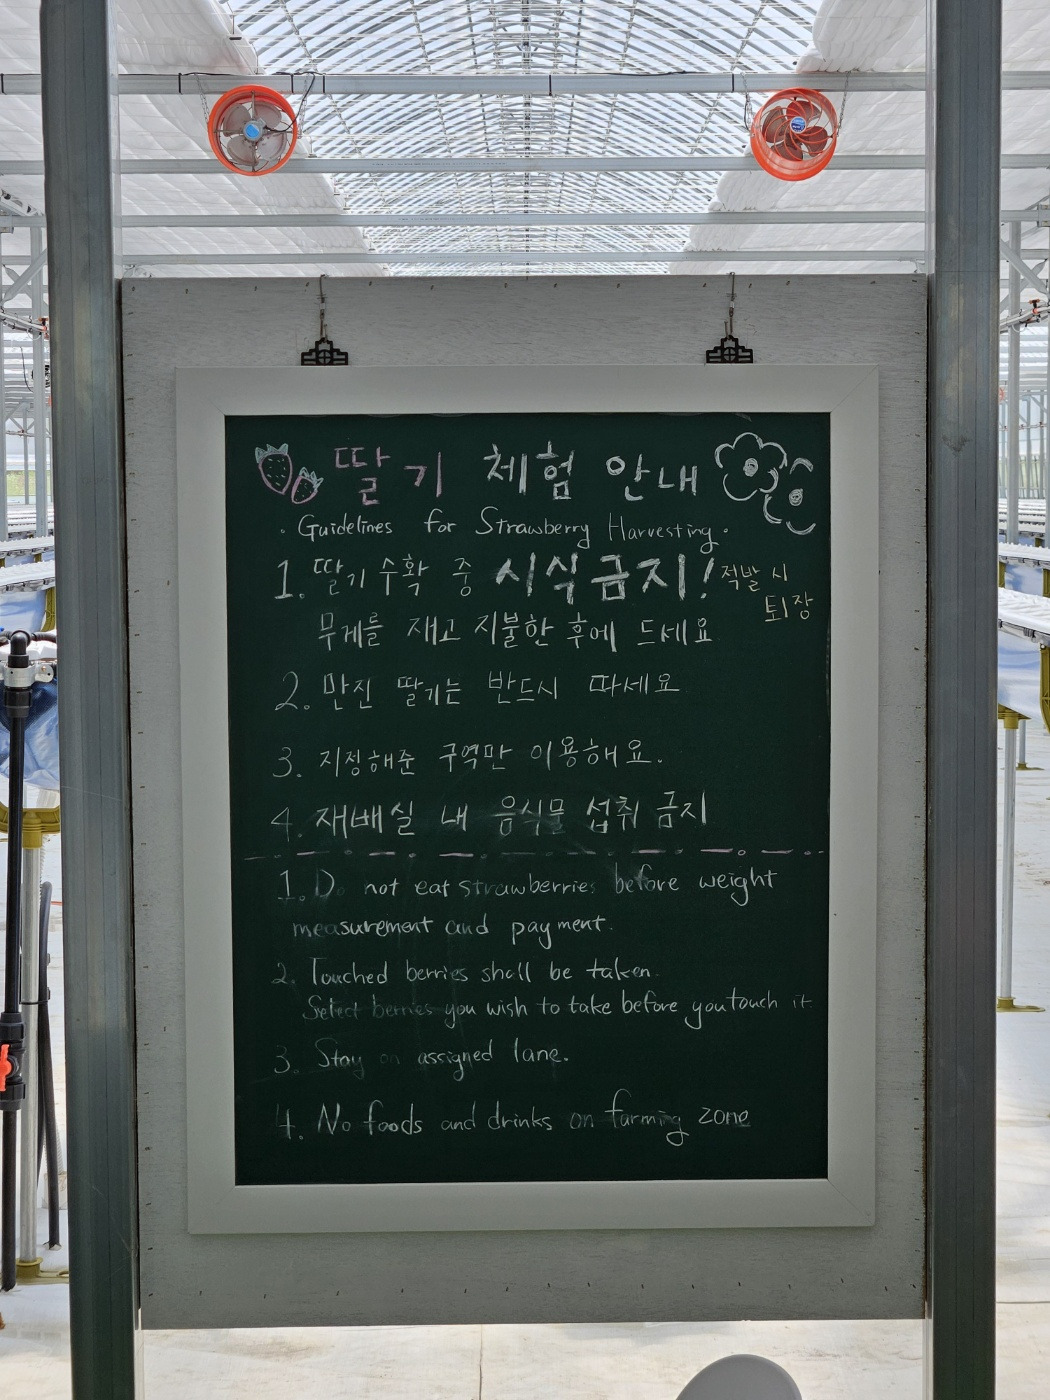 딸기 체험 안내
· Guidelines for Strawberry Harvesting ·
1. 딸기 수확 중 시식금지! 적발 시 퇴장
무게를 재고 지불한 후에 드세요
2. 만진 딸기는 반드시 따세요
3. 지정해준 구역만 이용해요.
4. 재배실 내 음식물 섭취 금지
1. Do not eat strawberries before weight
measurement and payment.
2. Touched berries shall be taken.
Select berries you wish to take before you touch it
3. Stay on assigned lane.
4. No foods and drinks on farming zone